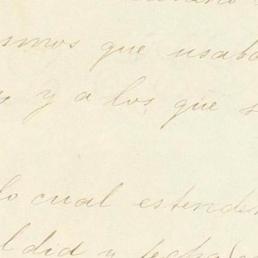 smos que usaba
y a los que s
lo cual estende
l dia y fecha